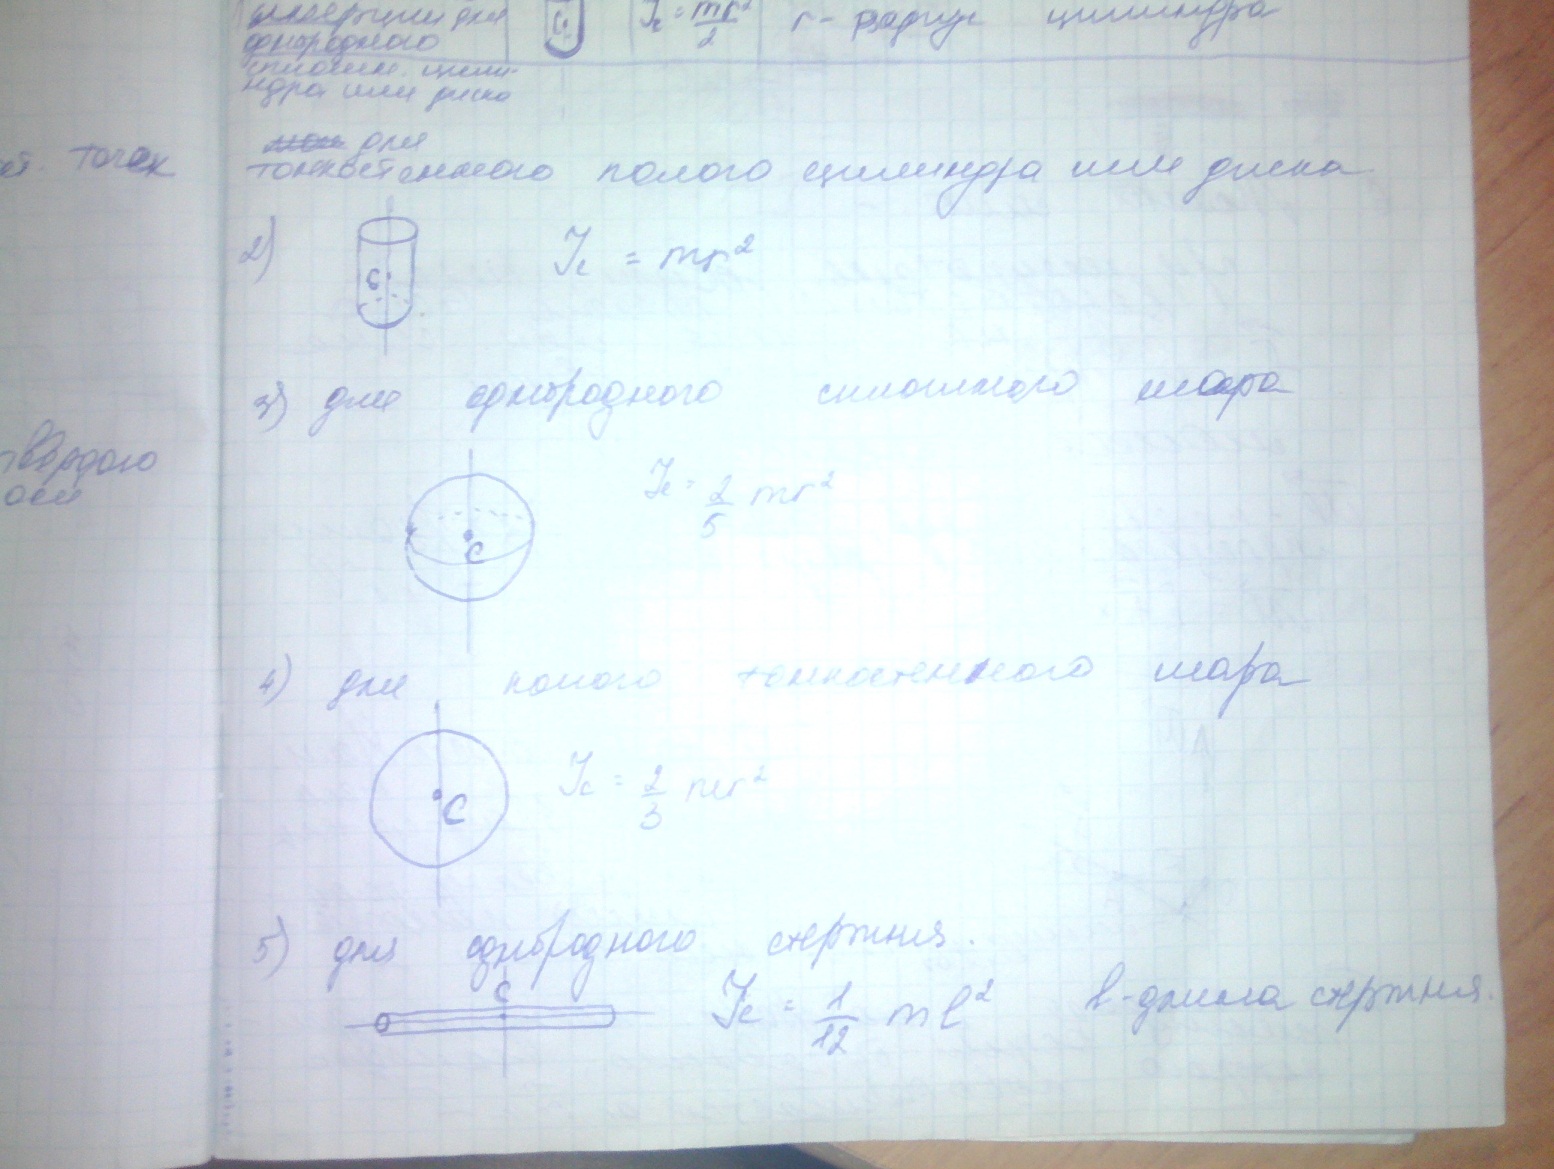 инерции для
однородного
сплошн. цили-
ндра или диска
C
Jc = mr²/2
r - радиус цилиндра
точек
для
тонкостенного полого цилиндра или диска
2)
C
Jc = mr²
3) для однородного сплошного шара
C
Jc = 2/5 mr²
твёрдого
оси
4) для полого тонкостенного шара
C
Jc = 2/3 mr²
5) для однородного стержня.
C
Jc = 1/12 ml²
l - длина стержня.